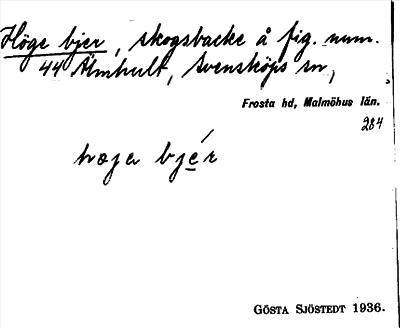 Höge bjer, skogsbacke å fig. num.
44 Älmhult, Svensköps sn,
Frosta hd, Malmöhus län.
284
hɶja bjér
GÖSTA SJÖSTEDT 1936.